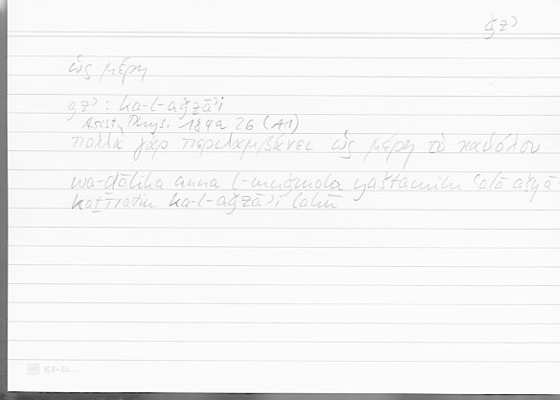 ǧzʾ
ὡς μέρη
ǧzʾ: ka-l-aǧzāʾi
Arist. Phys. 184a 26 (A1)
πολλὰ γὰρ περιλαμβάνει ὡς μέρη τὸ καθόλου
wa-ḏālika anna l-muǧmala yaštamilu ʿalā ašyā-
kaṯīratin ka-l-aǧzāʾi lahū